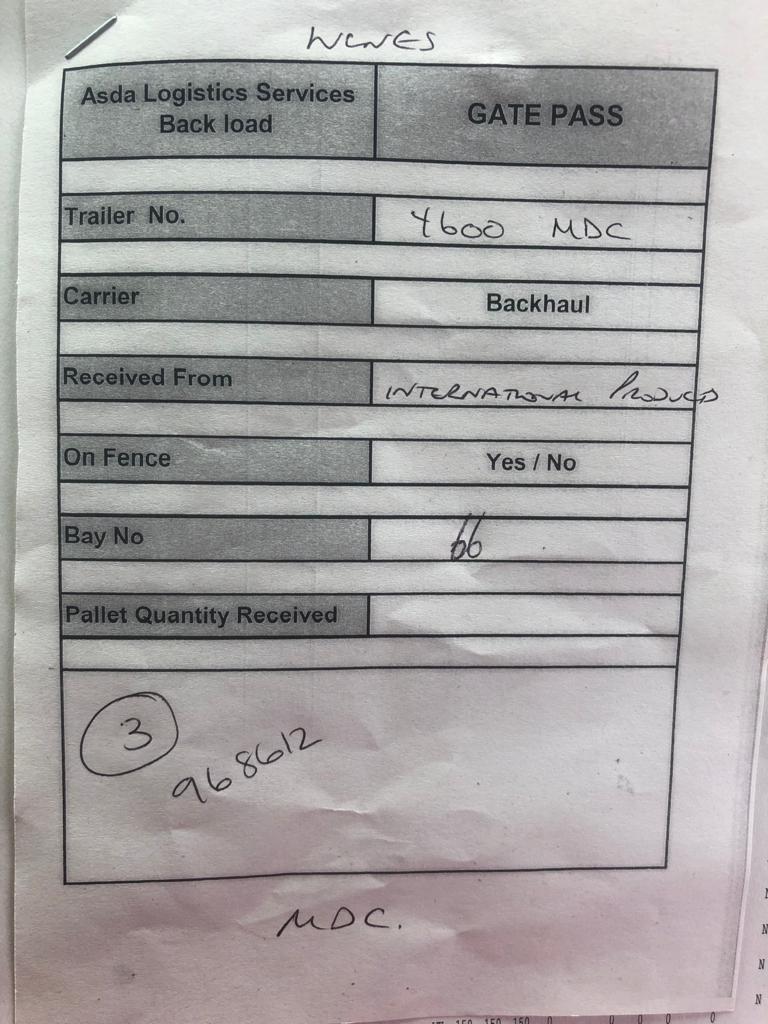 WINES
Asda Logistics Services
Back load
GATE PASS
Trailer No.
4600 MDC
Carrier
Backhaul
Received From
INTERNATIONAL PRODUCE
On Fence
Yes / No
Bay No
66
Pallet Quantity Received
3
968612
MDC.
N
N
N
150 150 150 0 0 0 0 0